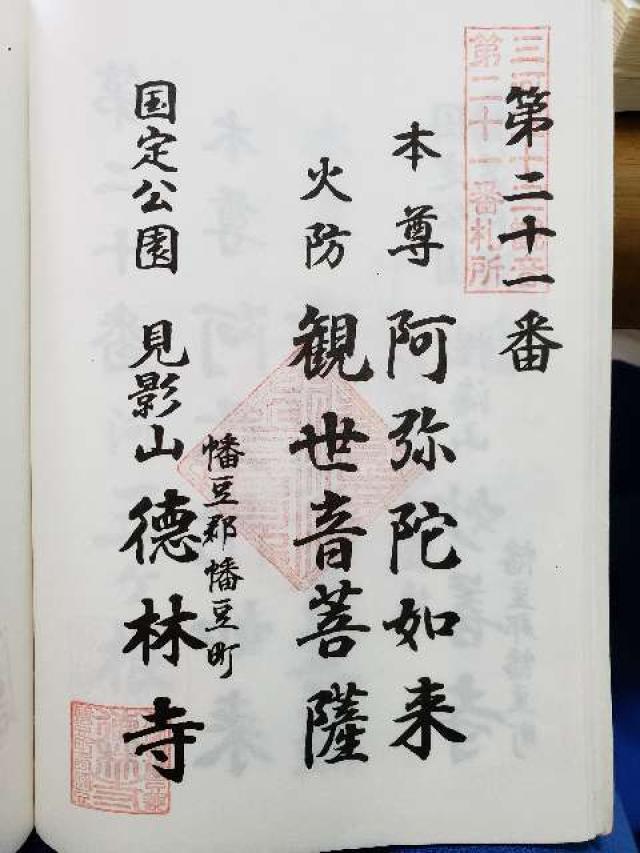 第二十一番
本尊 阿弥陀如来
火防 観世音菩薩
幡豆郡幡豆町
国定公園 見影山 徳林寺
三河三十三観音
第二十一番札所